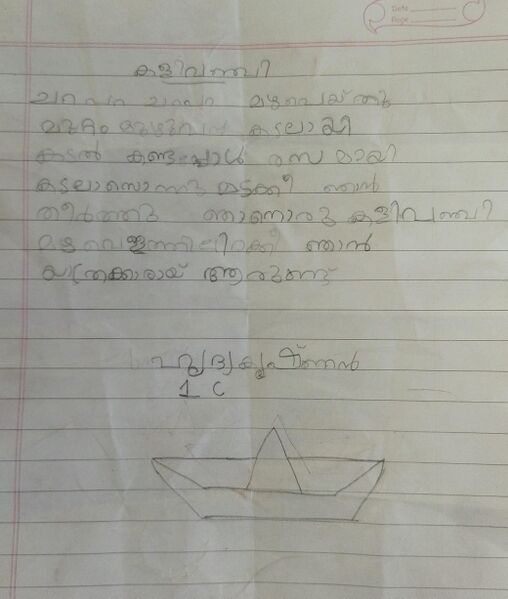 Date
Page
കളിവഞ്ചി
ചറപറ ചറപറ മഴപെയ്തു
മുറ്റം മുഴുവൻ കടലായി
കടൽ കണ്ടപ്പോൾ രസമായി
കടലാസൊന്നു മടക്കി ഞാൻ
തീർത്തു ഞാനൊരു കളിവഞ്ചി
മഴവെള്ളത്തിലിറക്കി ഞാൻ
യാത്രക്കാരായ് ആരുണ്ട്
1 C